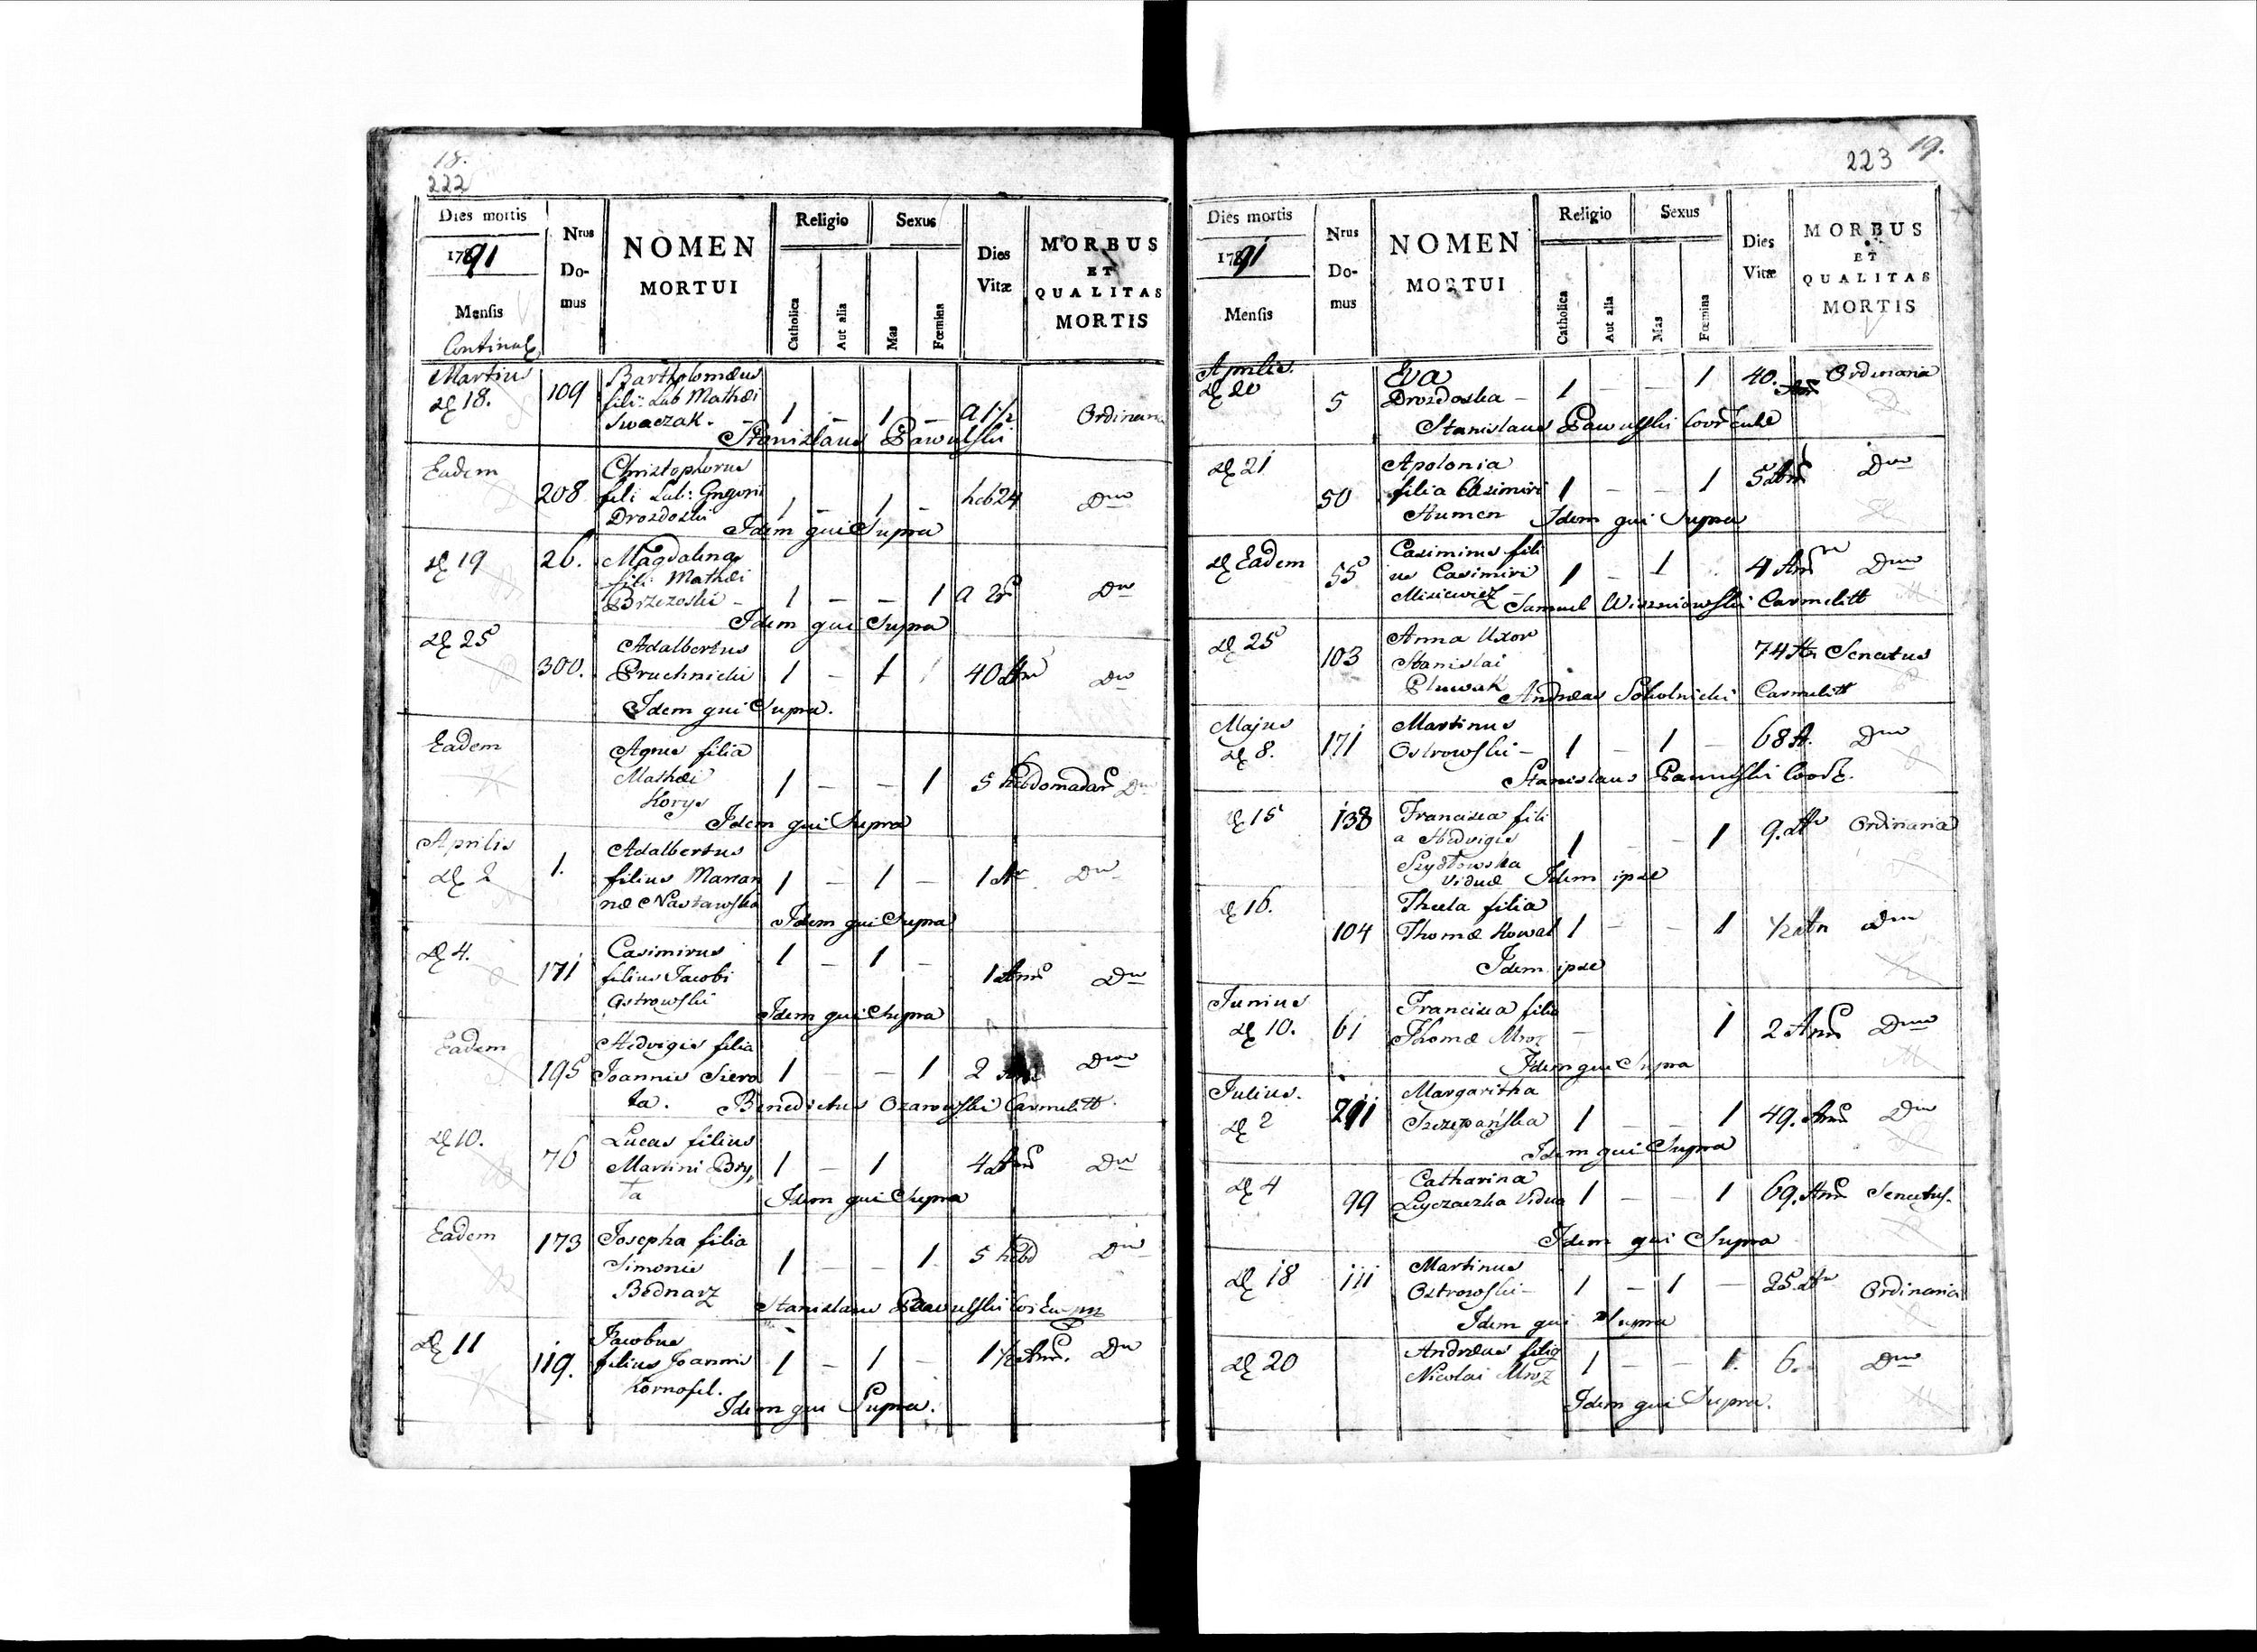 18.
222
Dies mortis
1791
Mensis
Nrus Domus
NOMEN
MORTUI
Religio
Catholica
Aut alia
Sexus
Mas
Fœmina
Dies
Vitæ
MORBUS
ET
QUALITAS
MORTIS
Martius
18. 109 Bartholomæus
fili: Lab Mathæi
Swaczak. 1 - 1 - a 1 1/2 Ordinaria
Stanislaus Pawulski
Eadem 208 Christophorus
fili Lab: Gregorii
Drozdoski 1 - 1 - heb 24 Dto
Idem qui Supra
19 26. Magdalena
fili: Mathæi
Brzezoski - 1 - - 1 a 2 Dto
Idem qui Supra
25 300. Adalbertus
Pruchnicki 1 - 1 40 An Dto
Idem qui Supra.
Eadem Agnes filia
Mathæi
Korys 1 - - 1 5 hebdomadar Dto
Idem qui Supra
Aprilis
2 1. Adalbertus
filius Marian
næ Nastawska 1 - 1 - 1 An Dto
Idem qui Supra
4. 171 Casimirus
filius Jacobi
Ostrowski 1 - 1 - 1 Ann Dto
Idem qui Supra
Eadem 195 Hedvigis filia
Joannis Siero
ta. 1 - - 1 2 Dto
Benedictus Ozarowski Carmelitt.
10. 76 Lucas filius
Martini Bry,
ta 1 - 1 4 Ann Dto
Idem qui Supra
Eadem 173 Josepha filia
Simonis
Bednarz 1 - - 1 5 hebd Dto
Stanislaus Pawulski
11 119. Jacobus
filius Joannis
Kornafel. 1 - 1 - 1 1/2 Ann. Dto
Idem qui Supra.
223 19.
Dies mortis
1791
Mensis
Nrus Domus
NOMEN
MORTUI
Religio
Catholica
Aut alia
Sexus
Mas
Fœmina
Dies
Vitæ
MORBUS
ET
QUALITAS
MORTIS
Aprilis
20 5 Eva
Drozdoska - 1 - - 1 40. Ordinaria
Stanislaus Pawulski
21 50 Apolonia
filia Casimiri
Humen 1 - - 1 5 Ann Dto
Idem qui Supra
Eadem 55 Casimirus fili
us Casimiri
Misiewicz - 1 - 1 4 Ann Dto
Samuel Wiszniowski Carmelitt
25 103 Anna Uxor
Stanislai
Pluwak 74 An Senectus
Andreas Sokolnicki Carmelitt
Majus
8. 171 Martinus
Ostrowski - 1 - 1 - 68 A. Dto
Stanislaus Pawulski
15 138 Francisca fili
a Hedvigis
Szydłowska
Viduæ 1 - - 1 9. An Ordinaria
Idem ipse
16. 104 Thecla filia
Thomæ Kowal 1 - - 1 1/2 An Dto
Idem ipse
Junius
10. 61 Francisca filia
Thomæ Mroz - 1 2 Ann Dto
Idem qui Supra
Julius.
2 211 Margaritha
Szczepańska 1 - - 1 49. Ann Dto
Idem qui Supra
4 99 Catharina
Łyczaczka Vidua 1 - - 1 69. Ann Senectus.
Idem qui Supra
18 111 Martinus
Ostrowski - 1 - 1 - 25. An Ordinaria
Idem qui Supra
20 Andreas filig
Nicolai Mroz 1 - - 1. 6. Dto
Idem qui Supra.